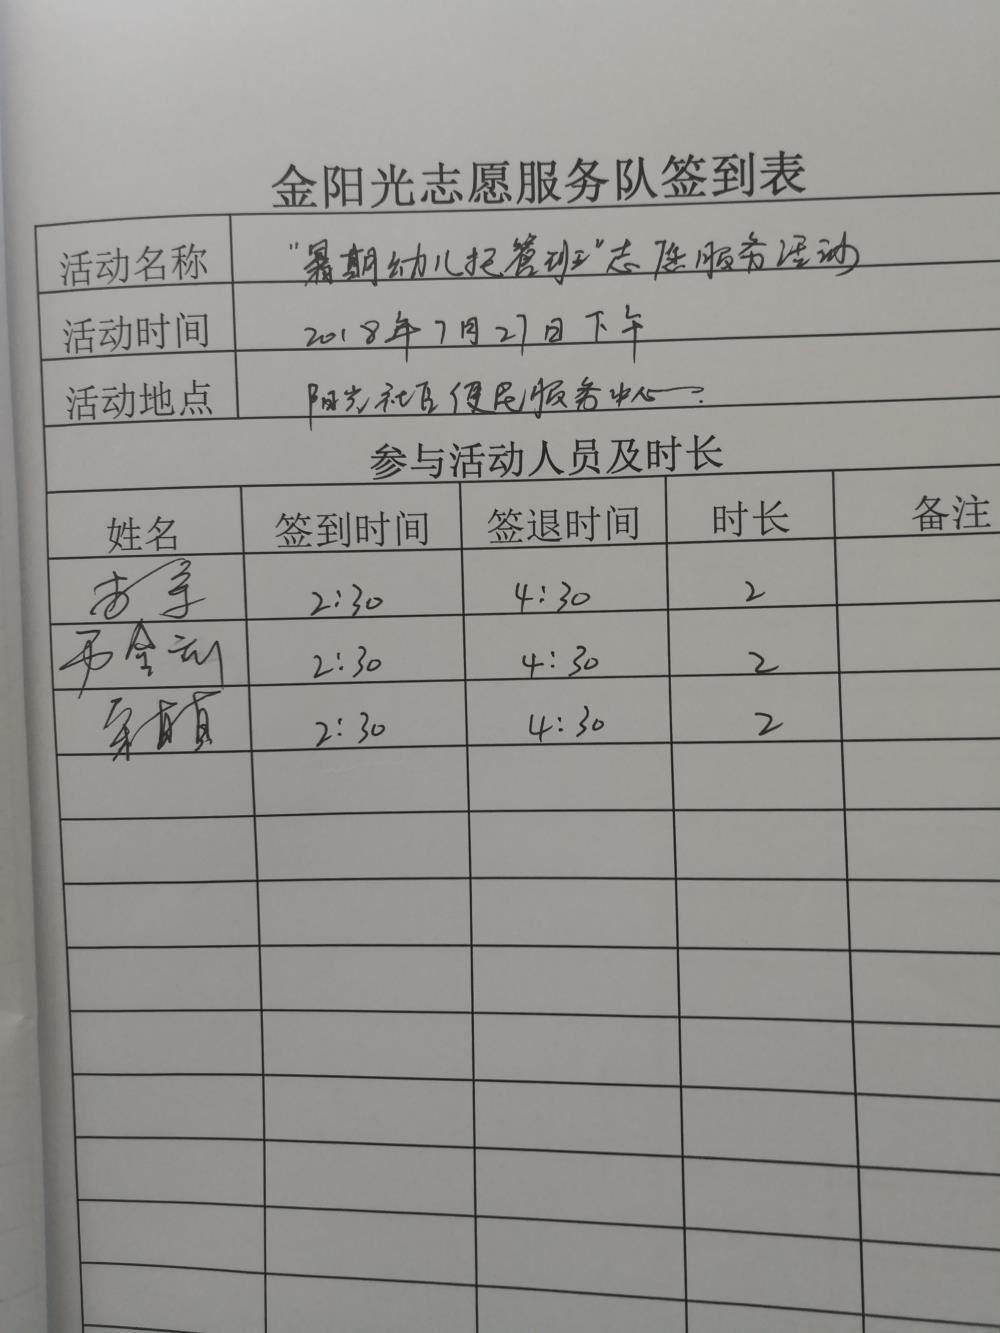 金阳光志愿服务队签到表
活动名称 "暑期幼儿托管班"志愿服务活动
活动时间 2018年7月27日下午
活动地点 阳光社区便民服务中心
参与活动人员及时长
姓名 签到时间 签退时间 时长 备注
2:30 4:30 2
2:30 4:30 2
2:30 4:30 2